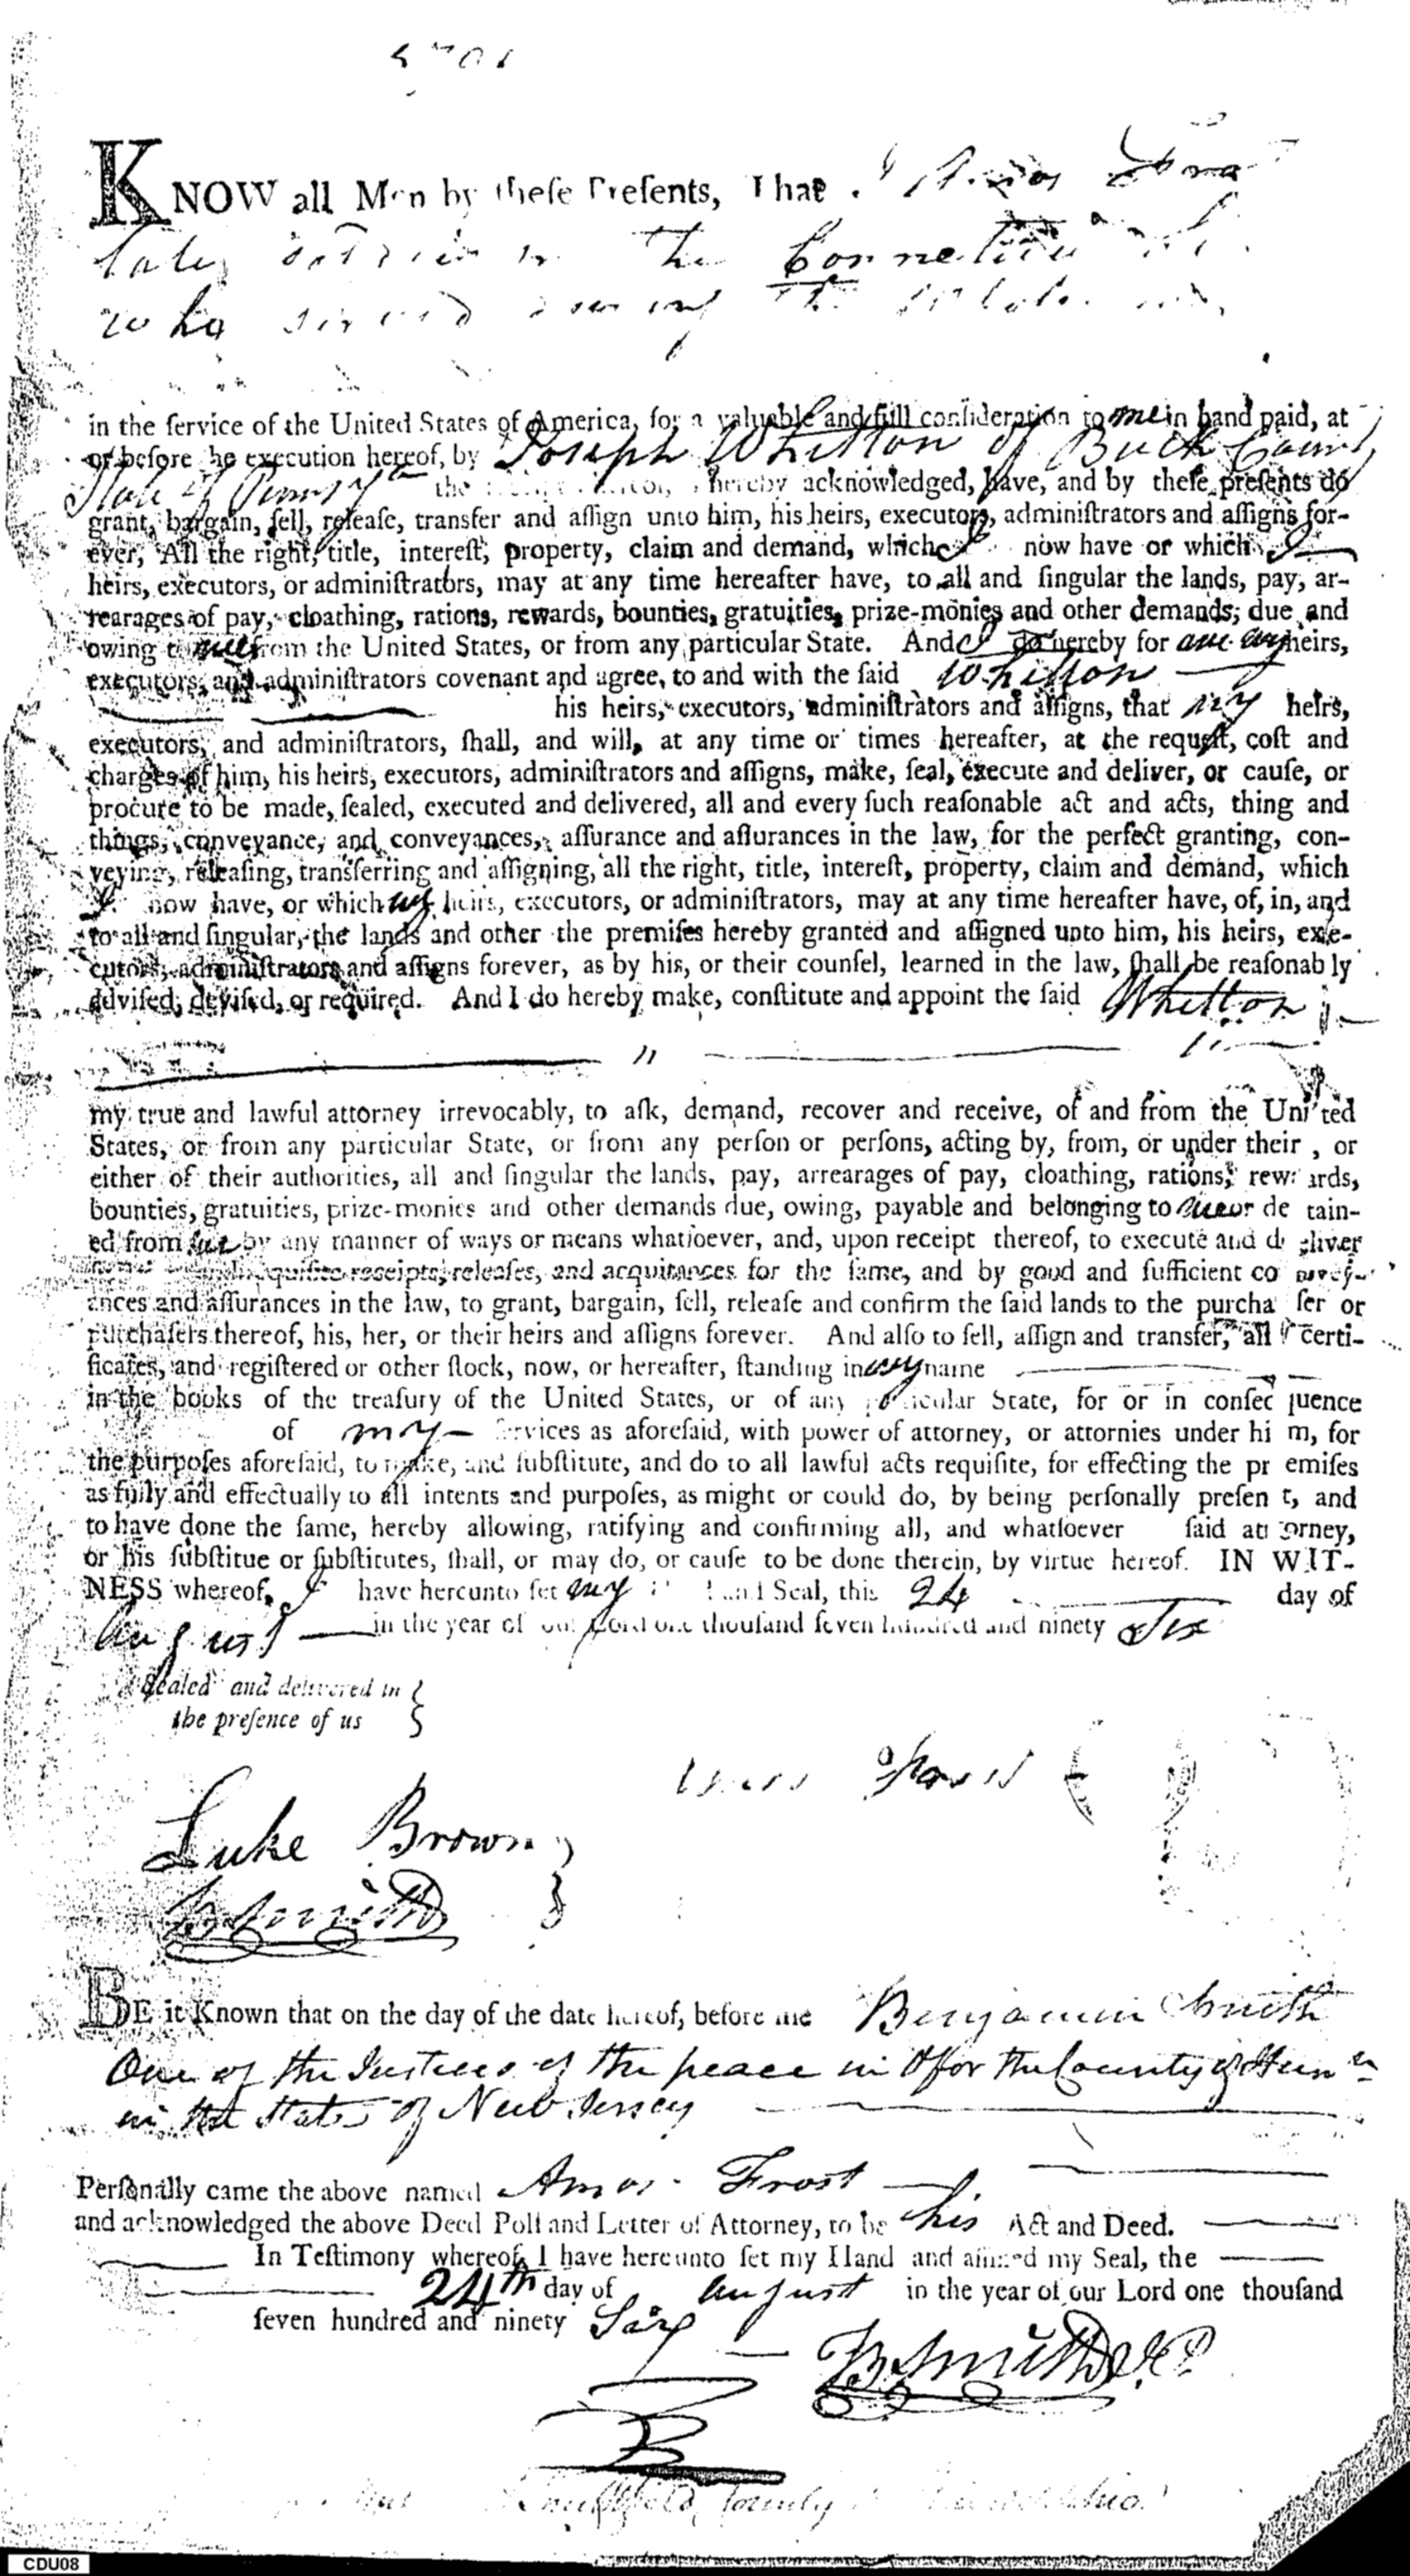 KNOW all Men by theſe Preſents, That I Amos
late in the Connecticut
who served during the
in the ſervice of the United States of America, for a valuable and full conſideration to me in hand paid, at
or before the execution hereof, by Joseph Whitton of Buck County
State of Pennsya the hereby acknowledged, have, and by theſe preſents do
grant, bargain, ſell, releaſe, transfer and aſſign unto him, his heirs, executors, adminiſtrators and aſſigns for-
ever, All the right, title, intereſt, property, claim and demand, which I now have or which I
heirs, executors, or adminiſtrators, may at any time hereafter have, to all and ſingular the lands, pay, ar-
rearages of pay, cloathing, rations, rewards, bounties, gratuities, prize-monies and other demands, due and
owing to me from the United States, or from any particular State. And I do hereby for me my heirs,
executors, and adminiſtrators covenant and agree, to and with the ſaid Whitton
his heirs, executors, adminiſtrators and aſſigns, that my heirs,
executors, and adminiſtrators, ſhall, and will, at any time or times hereafter, at the requeſt, coſt and
charges of him, his heirs, executors, adminiſtrators and aſſigns, make, ſeal, execute and deliver, or cauſe, or
procure to be made, ſealed, executed and delivered, all and every ſuch reaſonable act and acts, thing and
things, conveyance, and conveyances, aſſurance and aſſurances in the law, for the perfect granting, con-
veying, releaſing, transferring and aſſigning, all the right, title, intereſt, property, claim and demand, which
I now have, or which my heirs, executors, or adminiſtrators, may at any time hereafter have, of, in, and
to all and ſingular, the lands and other the premiſes hereby granted and aſſigned unto him, his heirs, exe-
cutors, adminiſtrators and aſſigns forever, as by his, or their counſel, learned in the law, ſhall be reaſonably
adviſed, deviſed, or required. And I do hereby make, conſtitute and appoint the ſaid Whitton
my true and lawful attorney irrevocably, to aſk, demand, recover and receive, of and from the United
States, or from any particular State, or from any perſon or perſons, acting by, from, or under their, or
either of their authorities, all and ſingular the lands, pay, arrearages of pay, cloathing, rations, rewards,
bounties, gratuities, prize-monies and other demands due, owing, payable and belonging to me or detain-
ed from me by any manner of ways or means whatſoever, and, upon receipt thereof, to execute and deliver
requiſite receipts, releaſes, and acquittances for the ſame, and by good and ſufficient convey-
ances and aſſurances in the law, to grant, bargain, ſell, releaſe and confirm the ſaid lands to the purchaſer or
purchaſers thereof, his, her, or their heirs and aſſigns forever. And alſo to ſell, aſſign and transfer, all certi-
ficates, and regiſtered or other ſtock, now, or hereafter, ſtanding in my name
in the books of the treaſury of the United States, or of any particular State, for or in conſequence
of my ſervices as aforeſaid, with power of attorney, or attornies under him, for
the purpoſes aforeſaid, to make, and ſubſtitute, and do to all lawful acts requiſite, for effecting the premiſes
as fully and effectually to all intents and purpoſes, as might or could do, by being perſonally preſent, and
to have done the ſame, hereby allowing, ratifying and confirming all, and whatſoever ſaid attorney,
or his ſubſtitue or ſubſtitutes, ſhall, or may do, or cauſe to be done therein, by virtue hereof. IN WIT-
NESS whereof, I have hereunto ſet my Hand Seal, this 24 day of
August in the year of our Lord one thouſand ſeven hundred and ninety Six
Sealed and delivered in
the preſence of us
Amos Frost
Luke Brown
B Smith
BE it Known that on the day of the date hereof, before me Benjamin Smith
One of the Justices of the peace in & for the County of Hun
in the State of New Jersey
Perſonally came the above named Amos Frost
and acknowledged the above Deed Poll and Letter of Attorney, to be his Act and Deed.
In Teſtimony whereof, I have hereunto ſet my Hand and affixed my Seal, the
24th day of August in the year of our Lord one thouſand
ſeven hundred and ninety Six
B Smith J.P.
County
CDU08